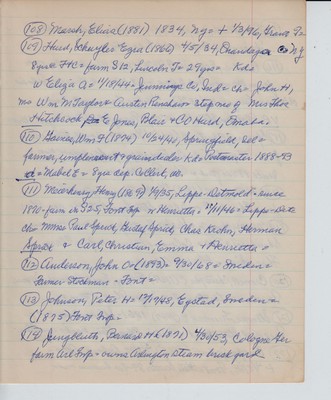 (108) Marsh, Elias (1881) 1834, Ny= + 1/2/96, Grant Tp
(109) Hurd, Schuyler Ezra (1866) 4/5/34, Onondaga Co Ny
8yrs = FHC = farm S12, Lincoln Tp 29yrs = Kds
w Eliza A = 12/18/44 = Jennings Co, Ind = ch = John H,
ms Wm M Taylor = Austin = step ne g Mrs Thos
Hitchcock, E Jones, Blair + CO Hurd, Omaha.
(110) Haines, Wm F (1874) 10/24/40, Springfield, Del =
farmer, implement + grain dealer Kd Postmaster 1888-93
d = Mabel E = 8yrs dep. Collect, wo.
(111) Henry (1869) 1/8/35, Lippe-Detmold = since
1890 - farm S25, Font Tnp w Henrietta = 2/11/46 = Lippe-Det
ch = Mmes Paul Sprick, Gustof Sprick, Chas Kuhn, Herman
Sprick + Carl, Christian, Emma + Henrietta =
(112) Anderson, John O = (1893) = 9/30/68 = Sweden =
Farmer - Stockman = Font =
(113) Johnson, Peter H = 12/17/48, Ey sted, Sweden =
(1875) Font Tnp =
(114) Jungbluth, (1871) 4/30/53, Cologne Ger
farm Arl Tnp = owns Arlington steam brick yard